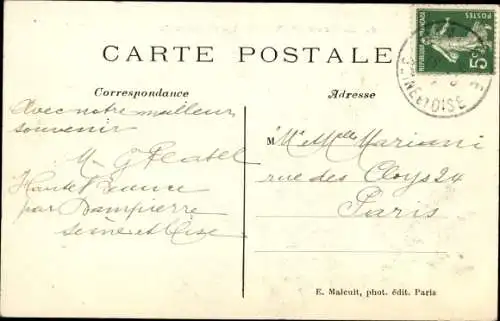 CARTE POSTALE
Correspondance
Adresse
RÉPUBLIQUE FRANÇAISE
POSTES
5c
SEINE ET OISE
Avec notre meilleur
souvenir
M
Haute Beauce
par Dampierre
Seine et Oise
M Mr et Melle Mariani
rue des Cloys 24
Paris
E. Malcuit, phot. édit. Paris